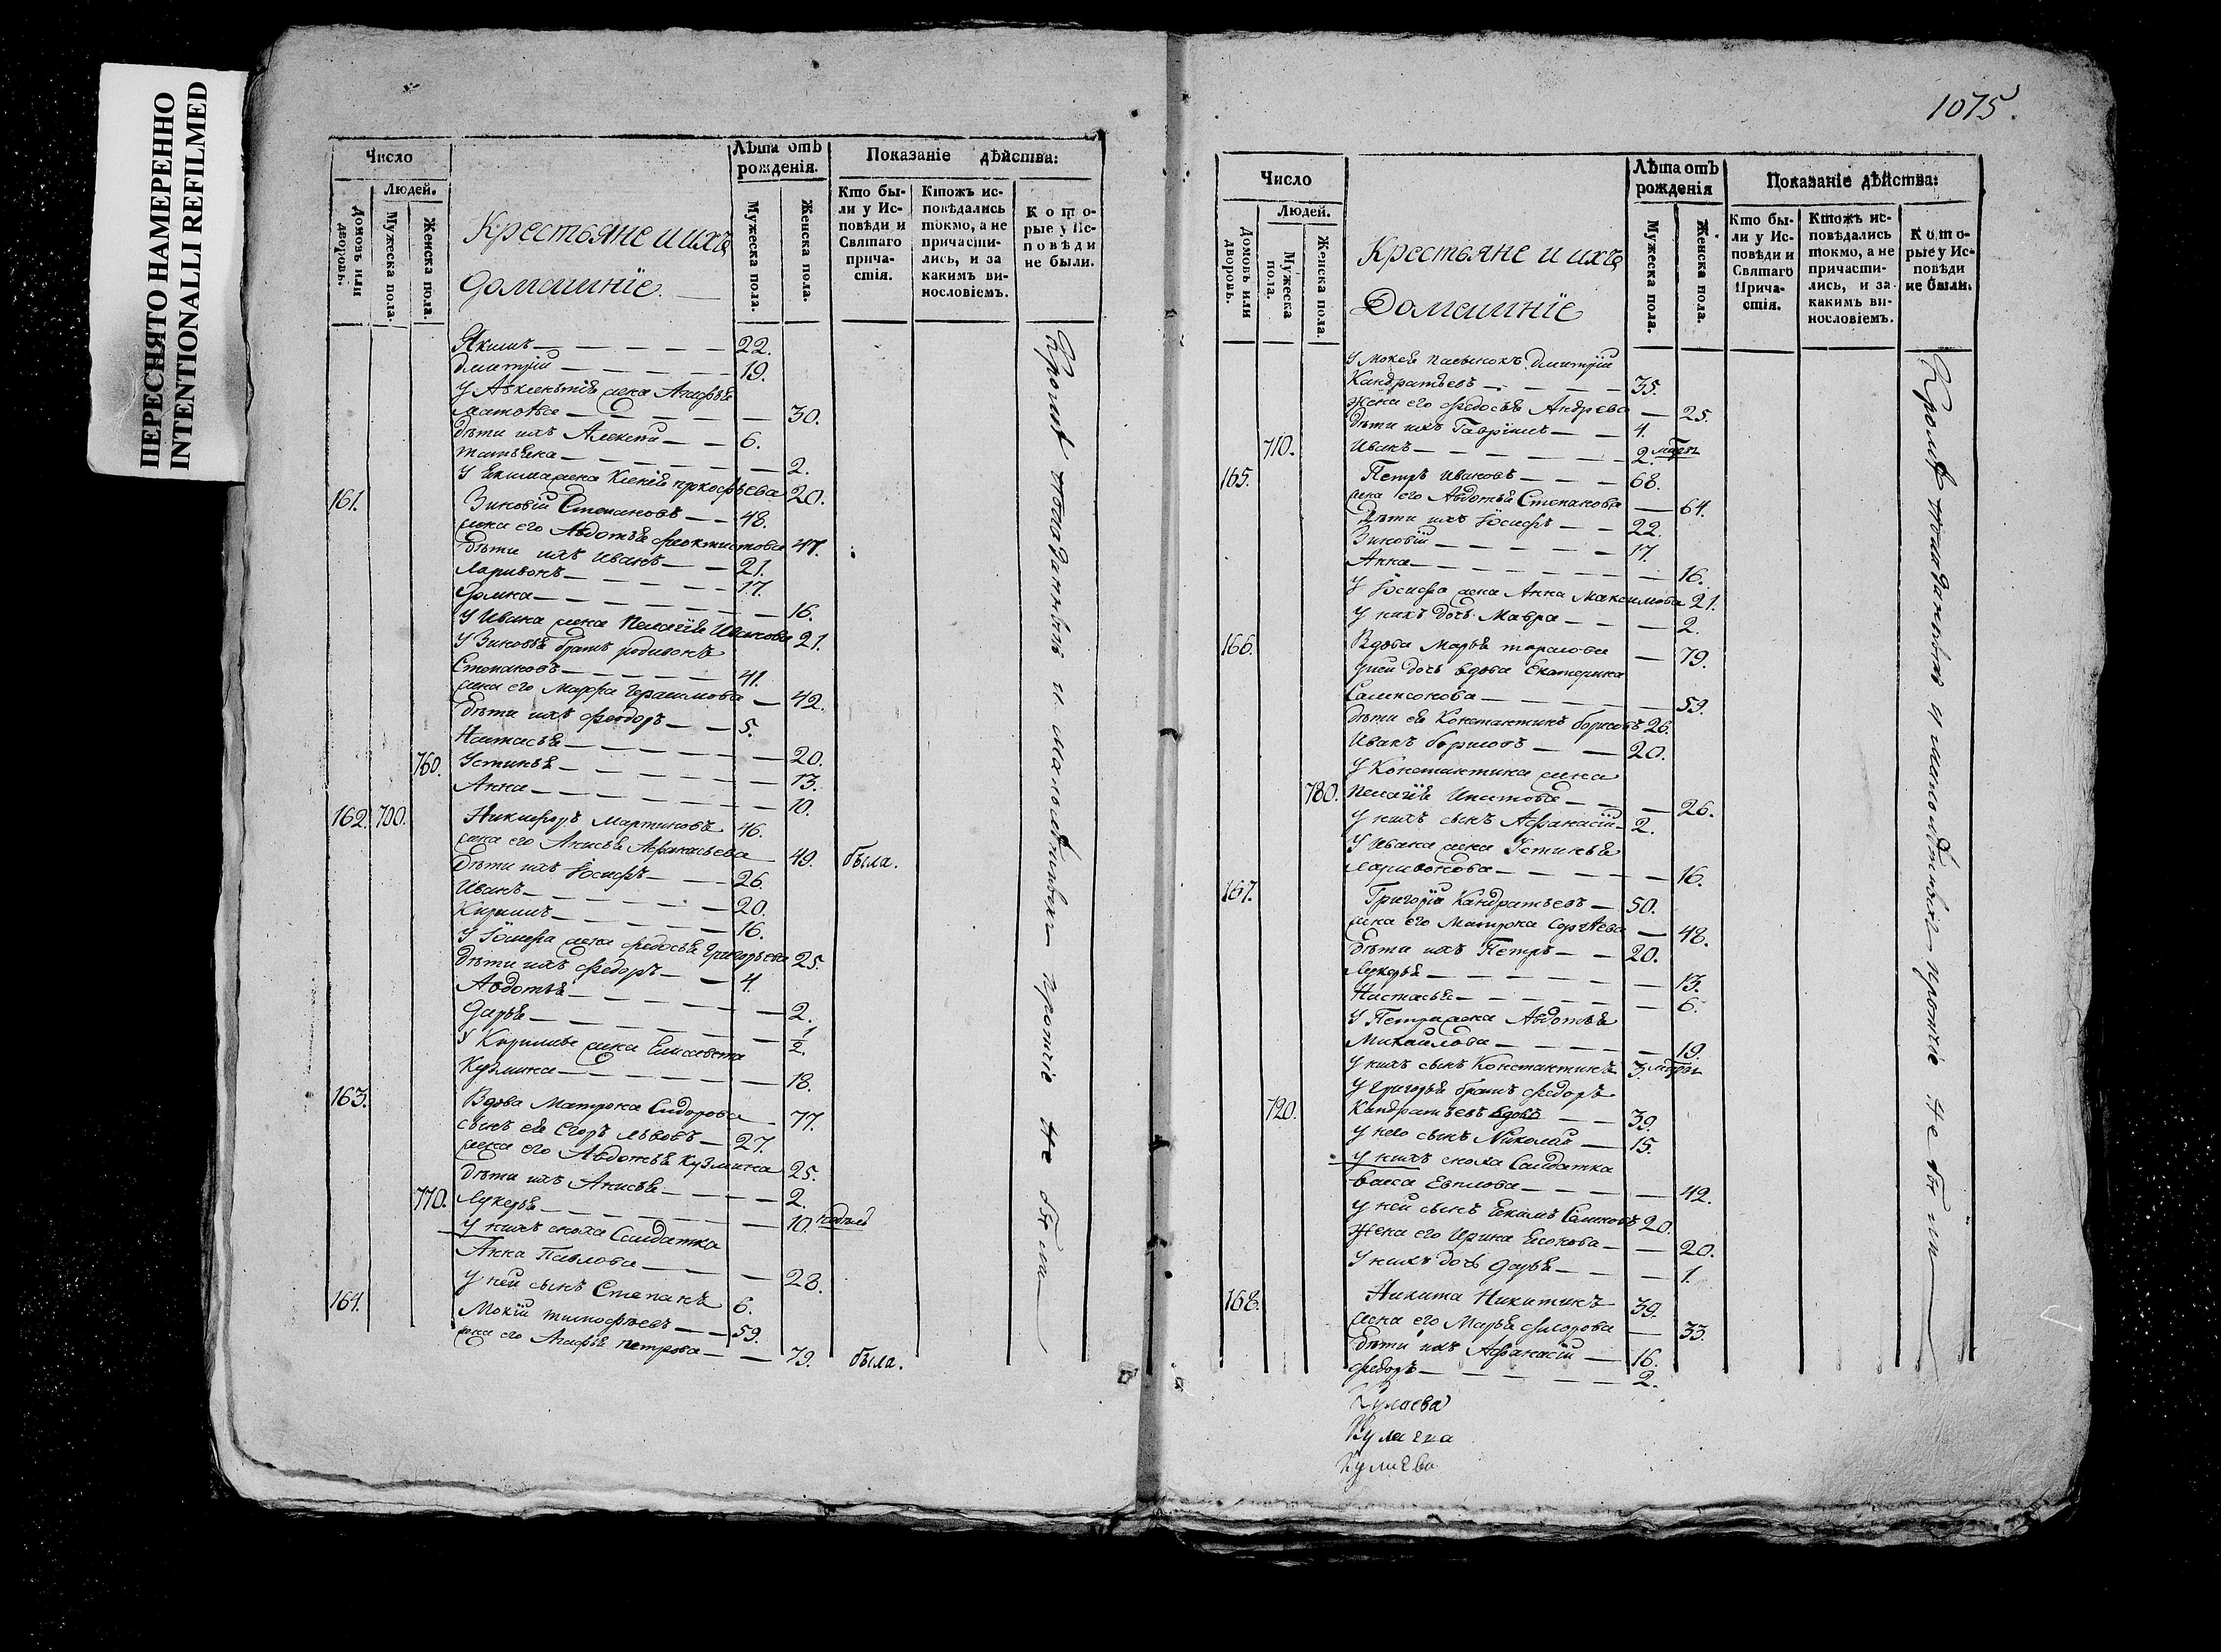 ПЕРЕСНЯТО НАМЕРЕННО
INTENTIONALLI REFILMED
Число
Людей.
Домовъ или дворовъ.
Мужеска пола.
Женска пола.
Крестьяне и ихъ
домашнїе.
Лѣта отъ рожденія.
Мужеска пола.
Женска пола.
Показаніе дѣйства:
Кто были у Исповѣди и Святаго причастія.
Ктожъ исповѣдались токмо, а не причастились, и за какимъ винословіемъ.
Которые у Исповѣди не были.
Якимъ 22.
Дмитрїй 19.
30.
дѣти ихъ Алексѣй 6.
Татьяна 2.
20.
161. Зиновїй Степановъ 48.
жена его Авдотья Феоктистова 47.
дѣти ихъ Иванъ 21.
Ларивонъ 17.
Фомка 16.
У Ивана жена Пелагїя Иванова 21.
У Зиновья братъ Родивонъ
Степановъ 41.
жена его Марфа Герасимова 42.
дѣти ихъ Феодоръ 5.
Настасья 20.
760. Устинья 13.
Анна 10.
162. 700. Никифоръ Мартиновъ 46.
жена его Анисья Афанасьева 49. была.
дѣти ихъ Іосифъ 26.
Иванъ 20.
Кирилъ 16.
У Іосифа жена Федосья Григорьева 25.
дѣти ихъ Федоръ 4.
Авдотья 2.
Дарья 1/2.
У Кирилы жена Елисавета
Кузмина 18.
163. Вдова Матрона Сидорова 77.
сынъ ея Егоръ Львовъ 27.
жена его Авдотья Кузмина 25.
дѣти ихъ Анисья 2.
770. Лукерья 10.
у нихъ сноха Салдатка
Анна Павлова 28.
У ней сынъ Степанъ 6.
164. Мокїй Тимофѣевъ 59.
жена его Агафья Петрова 79. была.
Кромѣ показанныхъ и малолѣтныхъ прочіе не были
1075.
Число
Людей.
Домовъ или дворовъ.
Мужеска пола.
Женска пола.
Крестьяне и ихъ
Домашнїе
Лѣта отъ рожденія
Мужеска пола.
Женска пола.
Показаніе дѣйства:
Кто были у Исповѣди и Святаго Причастія.
Ктожъ исповѣдались токмо, а не причастились, и за какимъ винословіемъ.
Которые у Исповѣди не были.
У Мокея пасынокъ Дмитрїй
Кандратьевъ 35.
Жена его Федосья Андрева 25.
дѣти ихъ Гаврїилъ 4.
710. Иванъ 2.
165. Петръ Ивановъ 68.
жена его Авдотья Степанова 64.
Дѣти ихъ Іосифъ 22.
Зиновїй 17.
Анна 16.
У Іосифа жена Анна Максимова 21.
У нихъ дочь Мавра 2.
166. Вдова Марья Тарасова 79.
У ней дочь вдова Екатерина
Самсонова 59.
дѣти ея Константинъ Борисовъ 26.
Иванъ Борисовъ 20.
У Константина жена
780. Пелагїя Ипатова 26.
У нихъ сынъ Афанасїй 2.
У Ивана жена Устинья
Ларивонова 16.
167. Григорїй Кандратьевъ 50.
жена его Матрона Сергѣева 48.
дѣти ихъ Петръ 20.
Лукерья 13.
Настасья 6.
У Петра жена Авдотья
Михайлова 19.
У нихъ сынъ Константинъ 3.
У Григорья братъ Федоръ
720. Кандратьевъ вдовъ 39.
У него сынъ Николай 15.
У нихъ сноха Салдатка
Васса Евилова 42.
У ней сынъ Екимъ 20.
Жена его Ирина 20.
У нихъ дочь Дарья 1.
168. Никита Никитинъ 39.
жена его Марья 33.
дѣти ихъ Афанасїй 16.
Федоръ 2.
Кромѣ показанныхъ и малолѣтныхъ прочіе не были